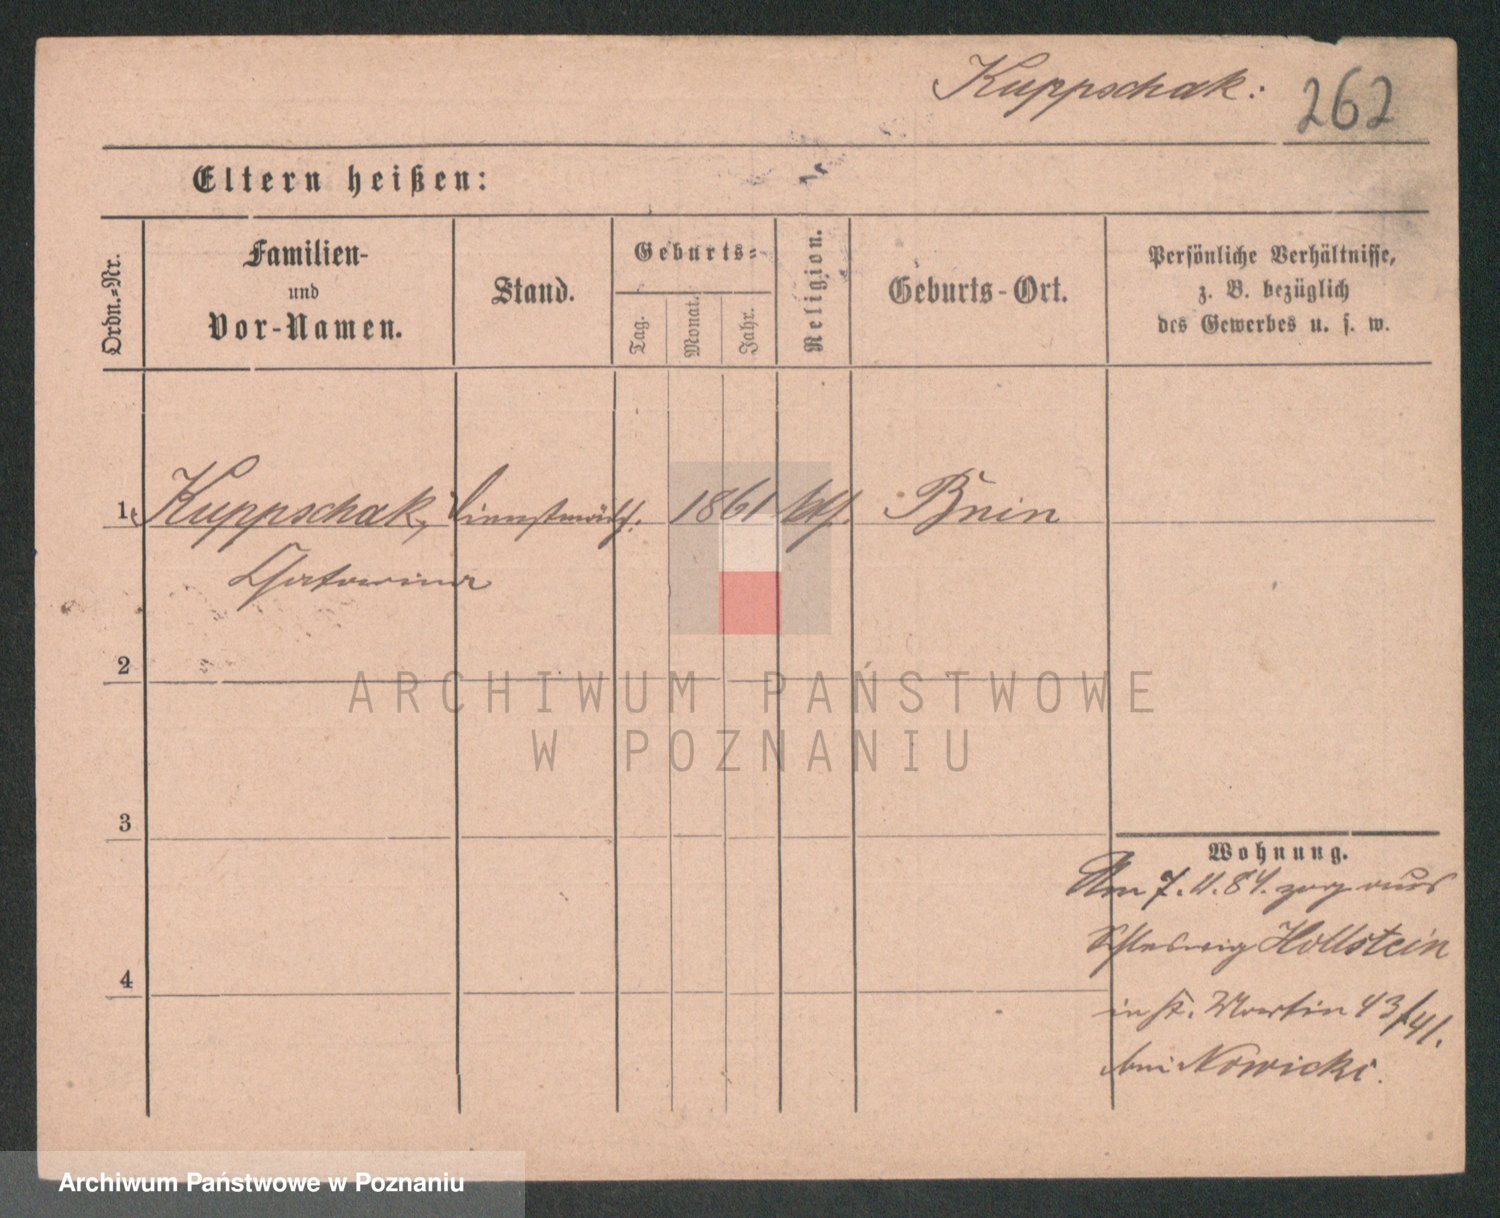 Kuppschak: 262
Eltern heißen:
Ordn.-Nr.
Familien-
und
Vor-Namen.
Stand.
Geburts-
Tag.
Monat.
Jahr.
Religion.
Geburts-Ort.
Persönliche Verhältnisse,
z. B. bezüglich
des Gewerbes u. s. w.
1 Kuppschak, 1861 Bnin
2
ARCHIWUM PAŃSTWOWE
W POZNANIU
3
Wohnung.
Am 7. 4. 84. zog aus
Schleswig Hollstein
in St. Martin 43/41.
bei Nowicki.
4
Archiwum Państwowe w Poznaniu